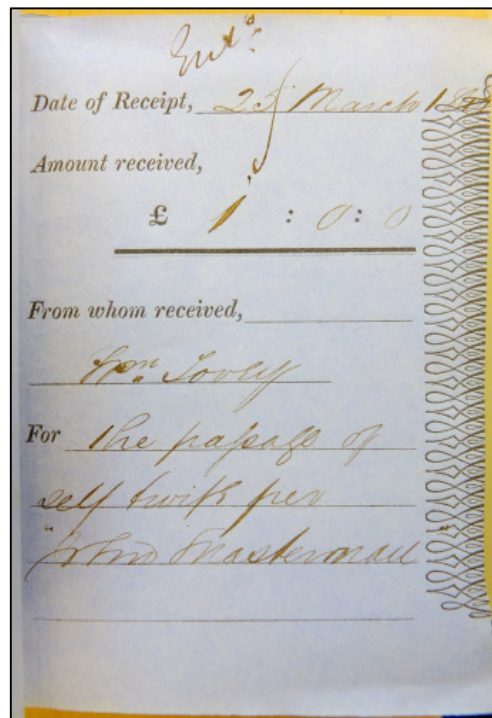 Entd
Date of Receipt, 25 March
Amount received,
£ 1 : 0 : 0
From whom received,
Wm. Tovey
For the passage of
self & wife per
"John Masterman"